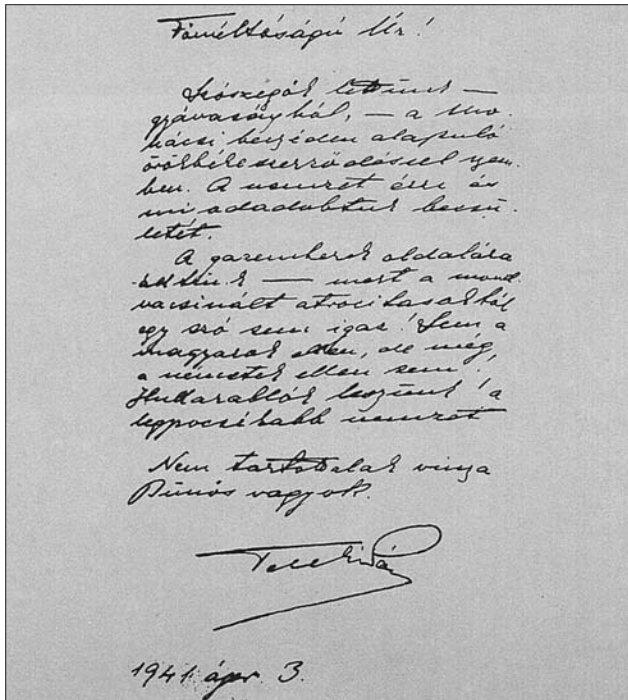 Főméltóságú Úr!
Szószegők lettünk —
gyávaságból, — a mo-
hácsi beszéden alapuló
örökbékeszerződéssel szem-
ben. A nemzet érzi és
mi odadobtuk becsü-
letét.
A gazemberek oldalára
álltunk — mert a mond-
vacsinált atrocitásokból
egy szó sem igaz! Sem a
magyarok ellen, de még
a németek ellen sem!
Hullarablók leszünk! a
legpocsékabb nemzet
Nem tartottalak vissza
Bűnös vagyok.
Teleki Pál
1941. ápr. 3.